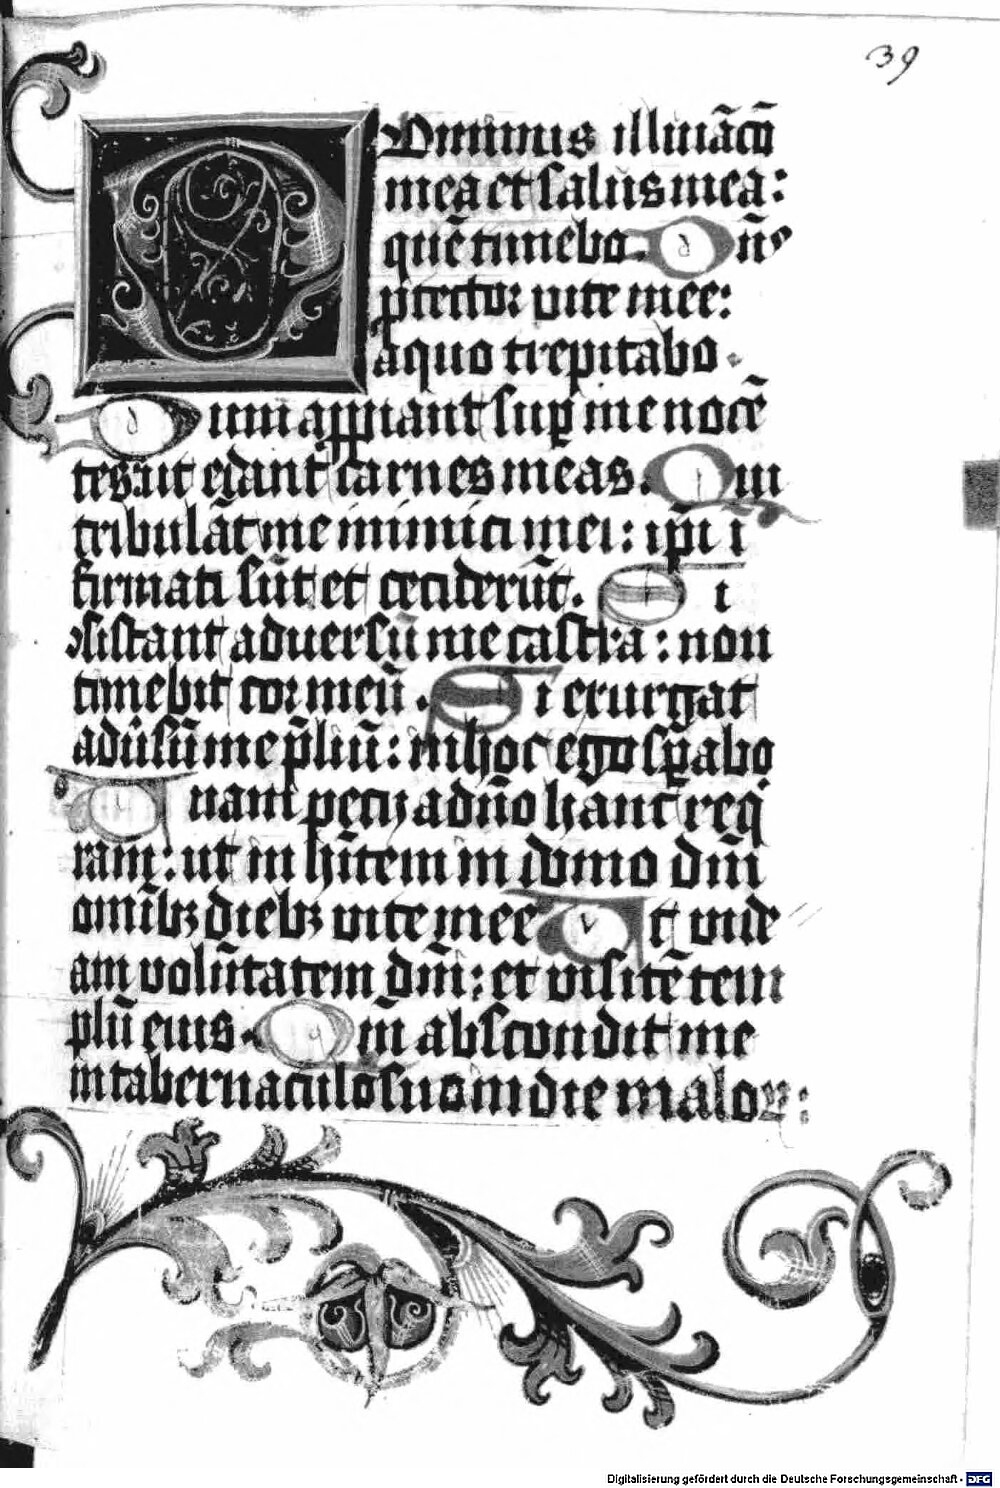 39
Dominus illūiācō
mea et salus mea:
quē timebo. Dn̄s
ꝓtector vite mee:
a quo trepitabo.
Dum aꝓpiant suꝑ me nocē
tes: ut edant carnes meas. Qui
tribulāt me inimici mei: ip̄i ī
firmati sūt et ceciderūt. Si
ꝯsistant aduersū me castra: non
timebit cor meū. Si exurgat
adūsū me p̄liū: in hoc ego sꝑabo
Unam pecij a dn̄o hanc req̄
ram: ut in hītem in domo dn̄i
omībꝫ diebꝫ vite mee Ut vide
am volūtatem dn̄i: et visitē tem
plū eius. Qm̄ abscondit me
in tabernaculo suo in die maloꝝ:
Digitalisierung gefördert durch die Deutsche Forschungsgemeinschaft - DFG